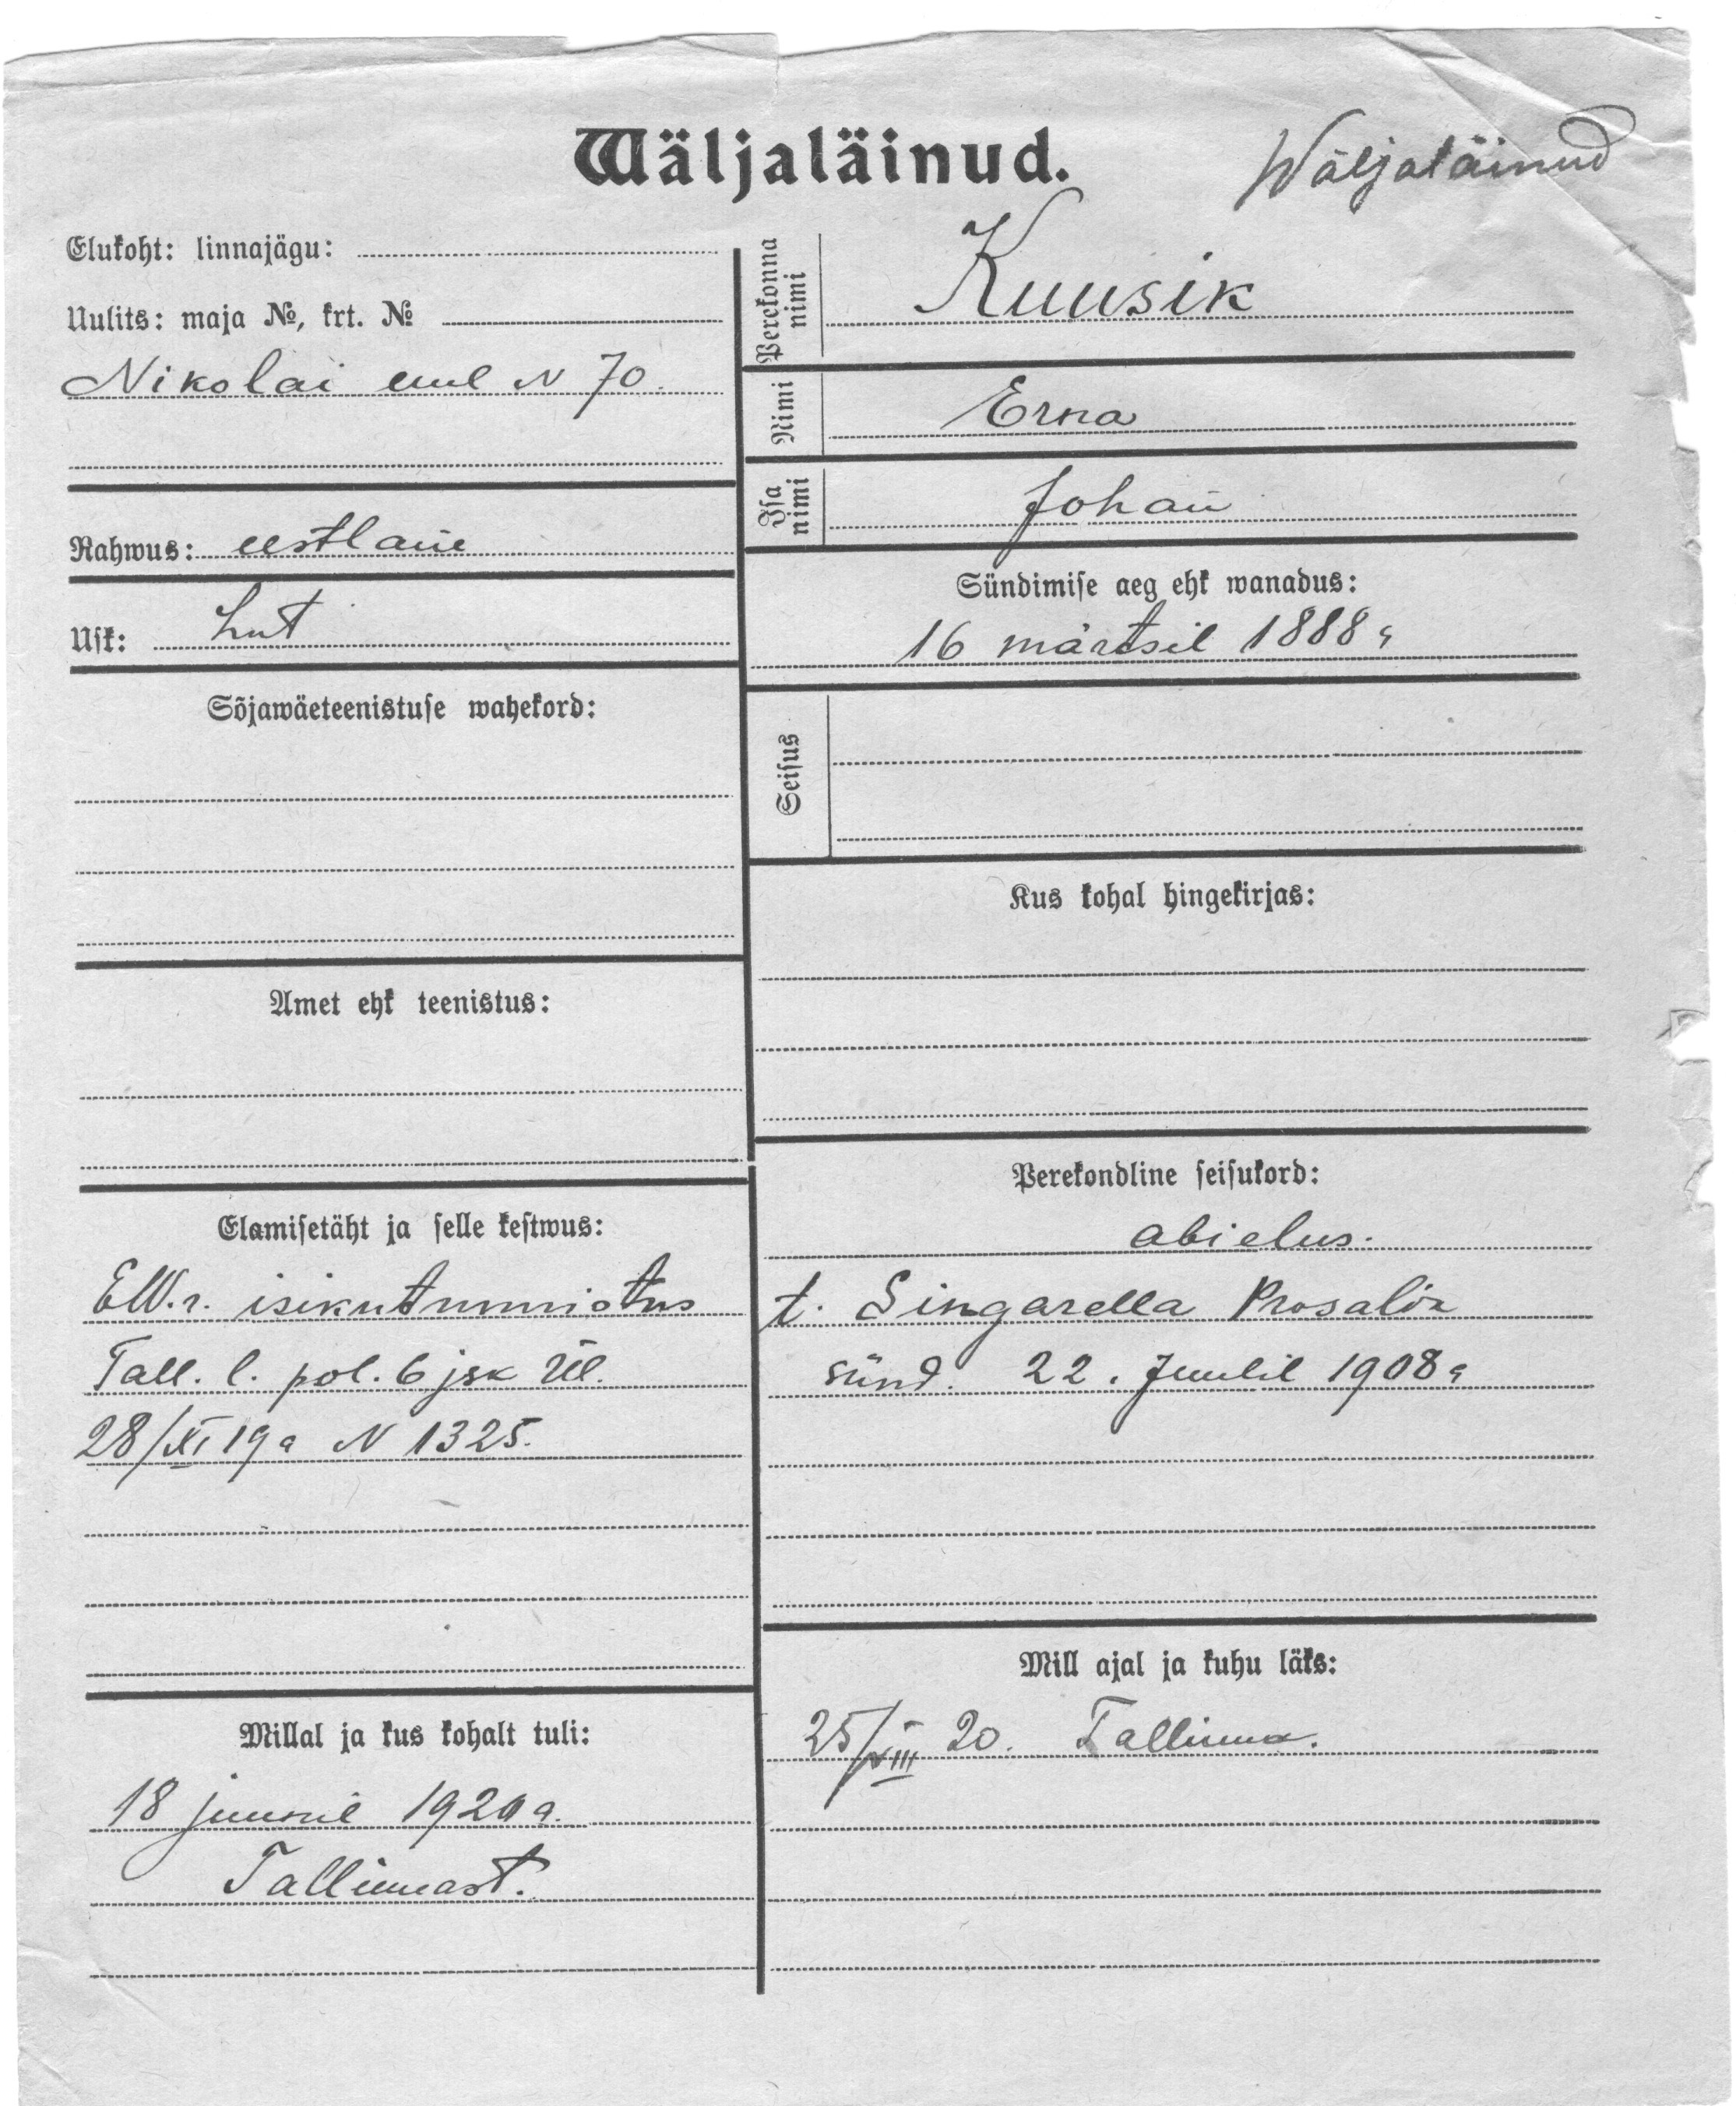 Wäljaläinud.
Wäljaläinud
Elukoht: linnajägu:
Uulits: maja №, krt. №
Nikolai uul N 70.
Rahwus: eestlane
Usk: Lut
Sõjawäeteenistuse wahekord:
Amet ehk teenistus:
Elamisetäht ja selle kestwus:
EW.r. isikutunnistus
Tall. l. pol. 6 jsk ül.
28/XI 19 a N 1325.
Millal ja kus kohalt tuli:
18 juunil 1920 a.
Tallinnast.
Perekonna nimi Kuusik
Nimi Erna
Isa nimi Johan
Sündimise aeg ehk wanadus:
16 märtsil 1888 a
Seisus
Kus kohal hingekirjas:
Perekondline seisukord:
abielus.
t. Singarella
sünd. 22. Juulil 1908 a
Mill ajal ja kuhu läks:
25/VIII 20. Tallinna.